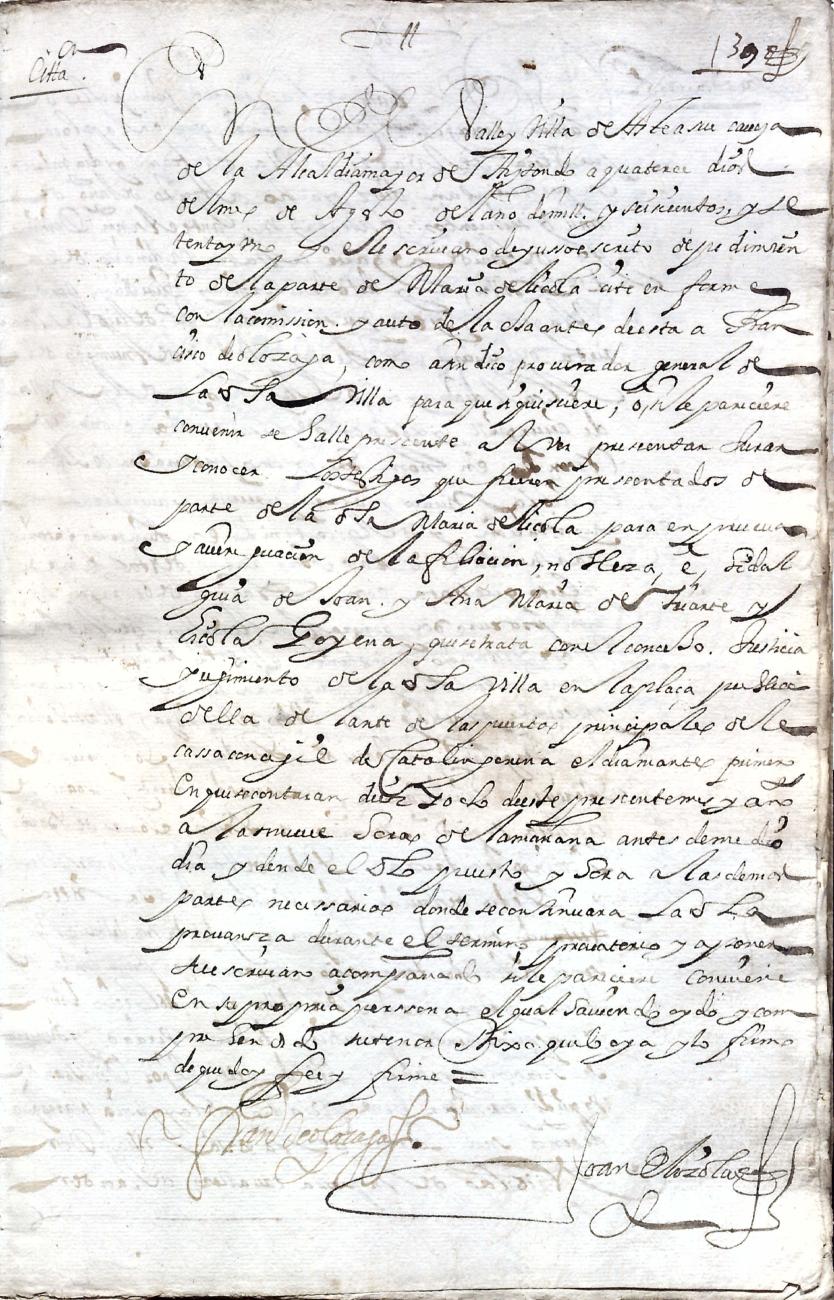 Citta on
139
En El Valle y Villa de Ateasu caveza
de la Alcaldia mayor de Aiztondo a quatorce dias
del mes de Agosto del año de mill y seiscientos y se
tenta y un yo el escrivano de yusso escrito de pedimien
to de la parte de Maria de Licola cite en forma
con la comission y auto de la oja antes de esta a Fran
cisco de olozaga, como a sindico procurador general de
La dha Villa para que si quisiere, o, si le pareciere
convenir se halle pressente al ver pressentar Jurar
y conocer los testigos que fueren pressentados de
parte de la dha Maria de Licola para en prueva
y averiguacion de la filiacion, nobleza, e, hidal
guia de Joan y Ana Maria de Huarte y
Licola Goyena que se trata con el concejo Justicia
y regimiento de la dha Villa en la plaça publica
della de lante de las puertas principales de la
cassa concegil de Catalinperena el dia martes primero
En que se contaran diez y ocho de este pressente mes y año
a las nueve horas de la mañana antes de medio
dia y dende el dho puesto y hora a las demas
partes necessarias donde se continuara La dha
provansza durante el termino provatorio y a poner
su escrivano acompañado si le pareciere convenir
En su propria perssona el qual haviendo oydo y com
prehendido su tenor Dixo que lo oya y lo firmo
de que doy fee y firme =
Fran de olozaga
Joan Elozola